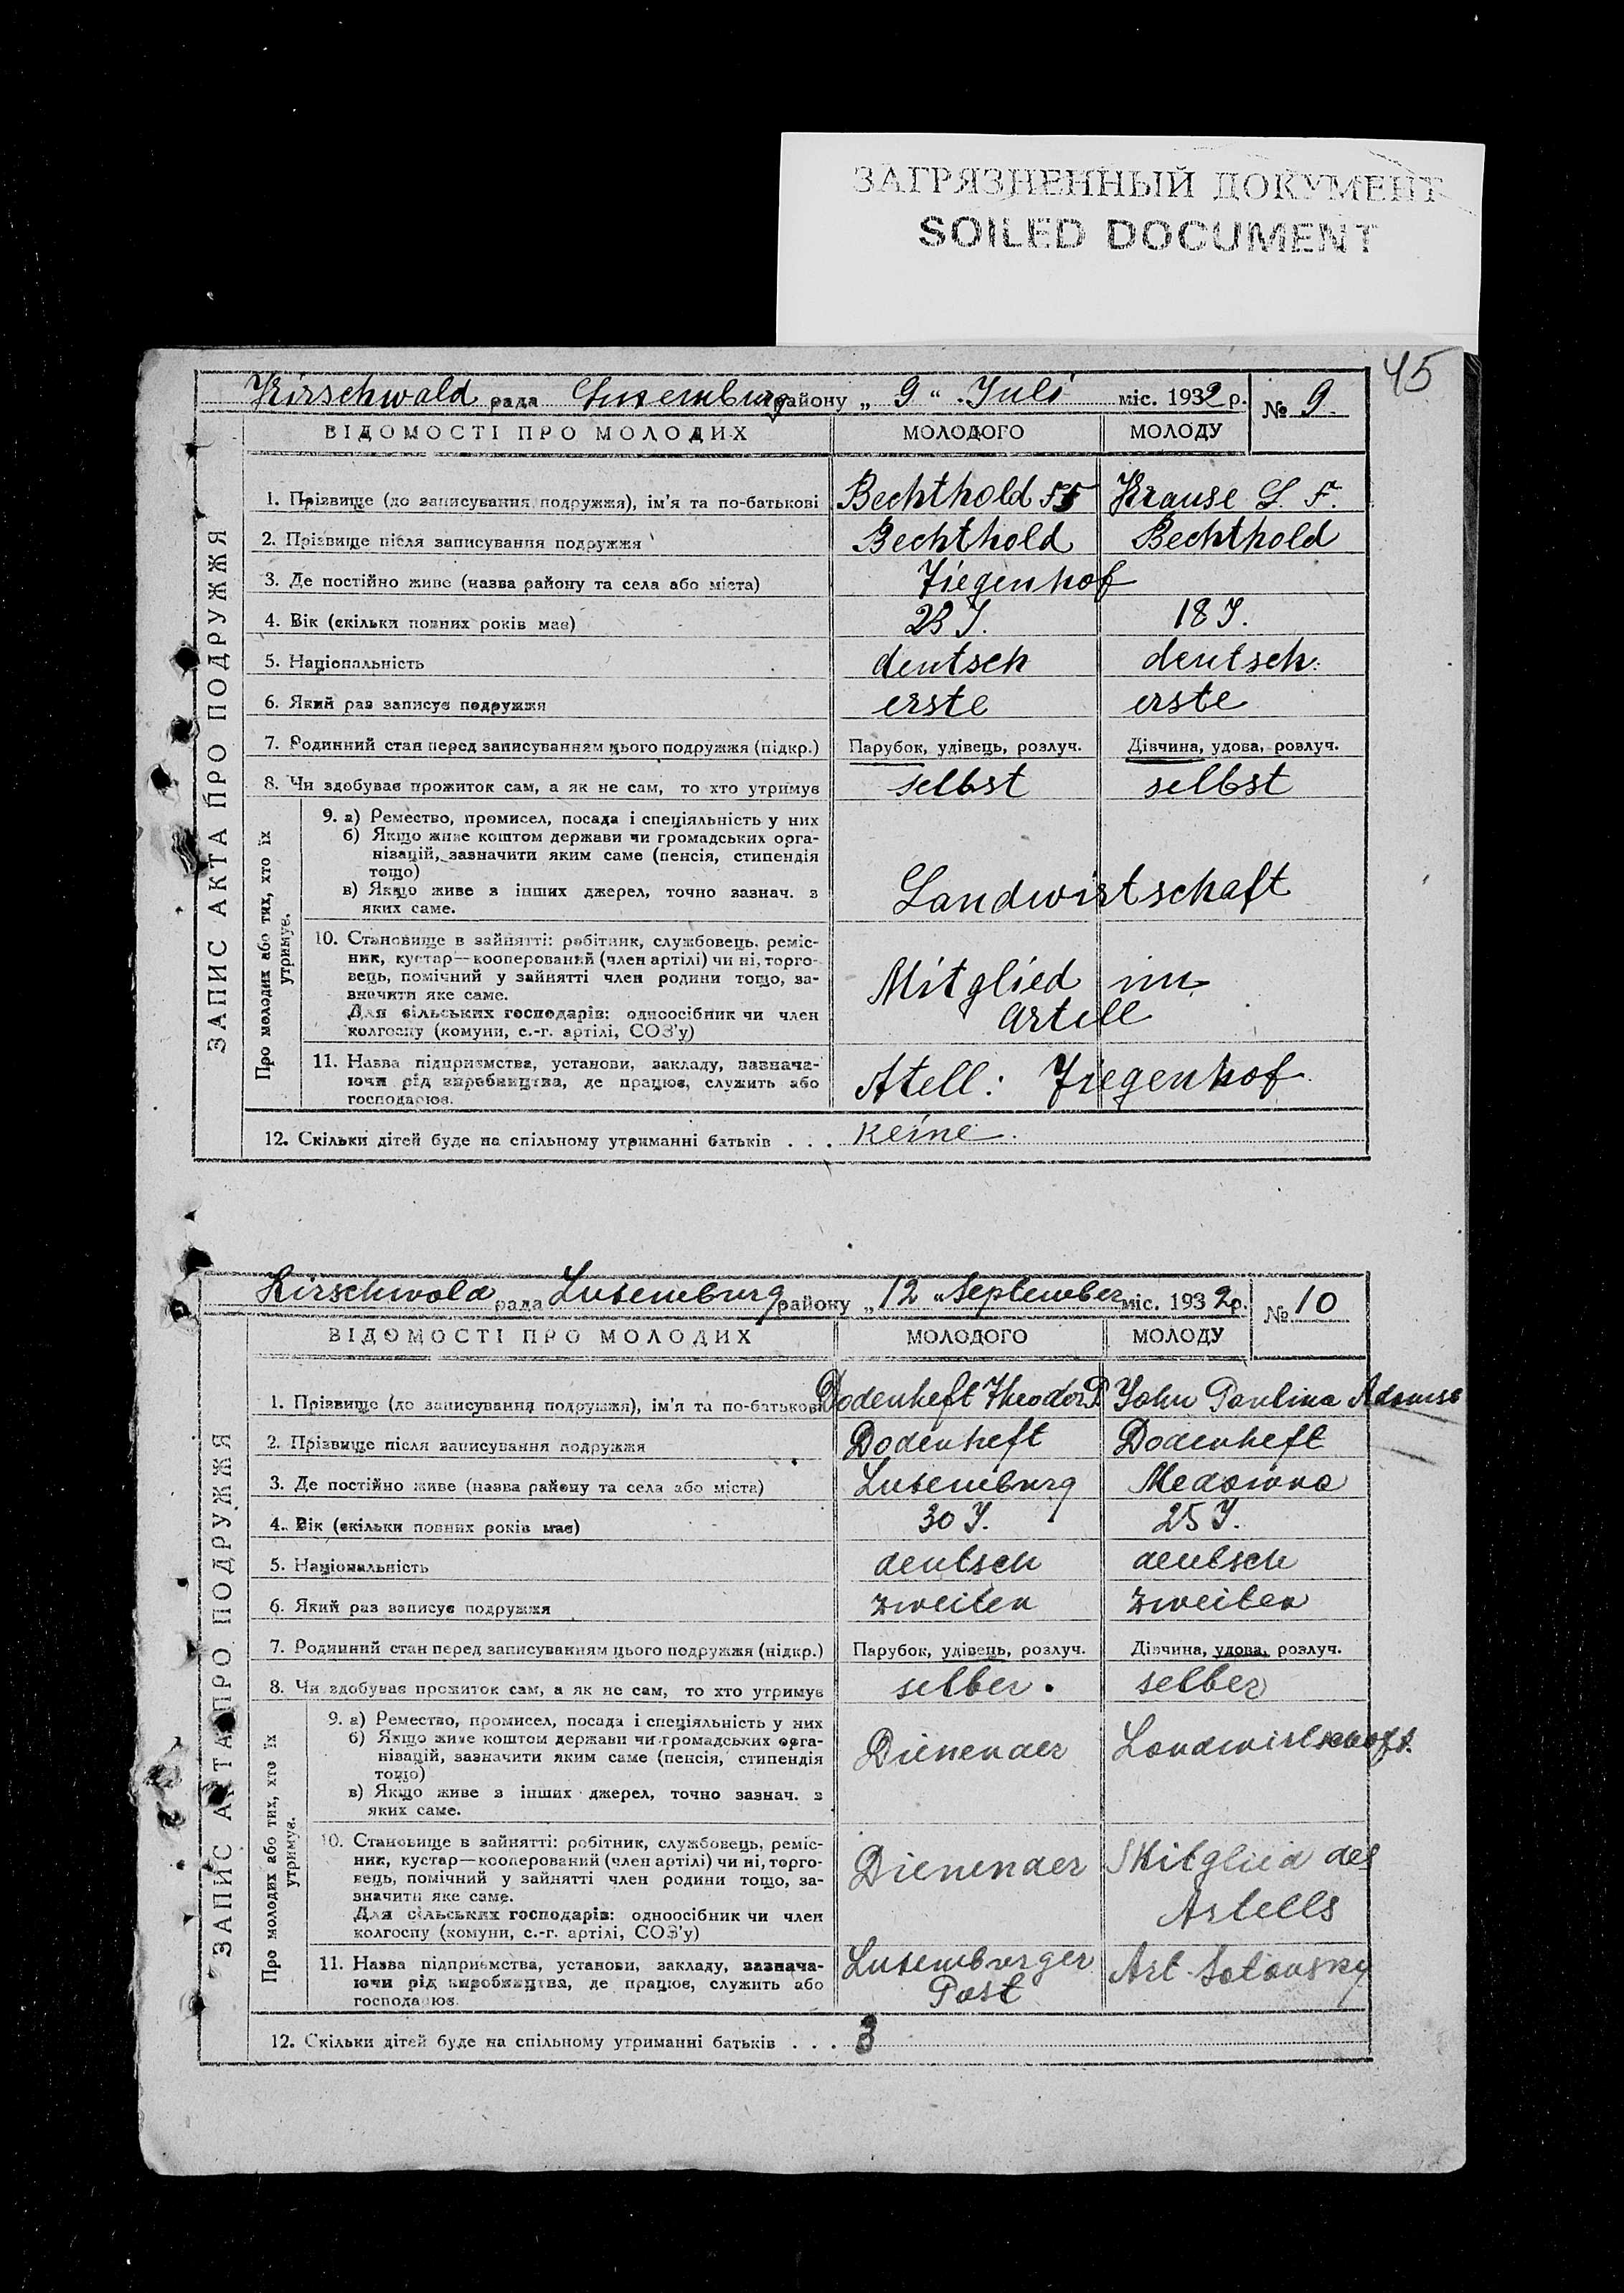 ЗАГРЯЗНЕННЫЙ ДОКУМЕНТ
SOILED DOCUMENT
45
Kirschwald рада Luxemburg району „ 9 “ Juli міс. 1932 р. № 9
ВІДОМОСТІ ПРО МОЛОДИХ МОЛОДОГО МОЛОДУ
ЗАПИС АКТА ПРО ПОДРУЖЖЯ
1. Прізвище (до записування подружжя), ім'я та по-батькові Bechthold Krause L. F.
2. Прізвище після записування подружжя Bechthold Bechthold
3. Де постійно живе (назва району та села або міста) Tiegenhof
4. Вік (скільки повних років має) 23 J. 18 J.
5. Національність deutsch deutsch.
6. Який раз записує подружжя erste erste
7. Родинний стан перед записуванням цього подружжя (підкр.) Парубок, удівець, розлуч. Дівчина, удова, розлуч.
8. Чи здобуває прожиток сам, а як не сам, то хто утримує selbst selbst
Про молодих або тих, хто їх
утримує.
9. а) Ремество, промисел, посада і спеціяльність у них
б) Якщо живе коштом держави чи громадських орга-
нізацій, зазначити яким саме (пенсія, стипендія
тощо)
в) Якщо живе з інших джерел, точно зазнач. з
яких саме.
Landwirtschaft
10. Становище в зайнятті: робітник, службовець, реміс-
ник, кустар—кооперований (член артілі) чи ні, торго-
вець, помічний у зайнятті член родини тощо, за-
значити яке саме.
Для сільських господарів: одноосібник чи член
колгоспу (комуни, с.-г. артілі, СОЗ'у)
Mitglied im
Artell
11. Назва підприємства, установи, закладу, зазнача-
ючи рід виробництва, де працює, служить або
господарює.
Atell: Tiegenhof
12. Скільки дітей буде на спільному утриманні батьків . . . keine.
Kirschwald рада Luxemburg району „ 12 “ September міс. 1932 р. № 10
ВІДОМОСТІ ПРО МОЛОДИХ МОЛОДОГО МОЛОДУ
ЗАПИС АКТА ПРО ПОДРУЖЖЯ
1. Прізвище (до записування подружжя), ім'я та по-батькові Dodenheft Theodor P. John Paulina
2. Прізвище після записування подружжя Dodenheft Dodenheft
3. Де постійно живе (назва району та села або міста) Luxemburg
4. Вік (скільки повних років має) 30 J. 25 J.
5. Національність deutsch deutsch
6. Який раз записує подружжя zweiten zweiten
7. Родинний стан перед записуванням цього подружжя (підкр.) Парубок, удівець, розлуч. Дівчина, удова, розлуч.
8. Чи здобуває прожиток сам, а як не сам, то хто утримує selber. selber
Про молодих або тих, хто їх
утримує.
9. а) Ремество, промисел, посада і спеціяльність у них
б) Якщо живе коштом держави чи громадських орга-
нізацій, зазначити яким саме (пенсія, стипендія
тощо)
в) Якщо живе з інших джерел, точно зазнач. з
яких саме.
Dienender Landwirtschaft.
10. Становище в зайнятті: робітник, службовець, реміс-
ник, кустар—кооперований (член артілі) чи ні, торго-
вець, помічний у зайнятті член родини тощо, за-
значити яке саме.
Для сільських господарів: одноосібник чи член
колгоспу (комуни, с.-г. артілі, СОЗ'у)
Dienender Mitglied des
Artells
11. Назва підприємства, установи, закладу, зазнача-
ючи рід виробництва, де працює, служить або
господарює.
Luxemburger Art.
Post
12. Скільки дітей буде на спільному утриманні батьків . . . 3